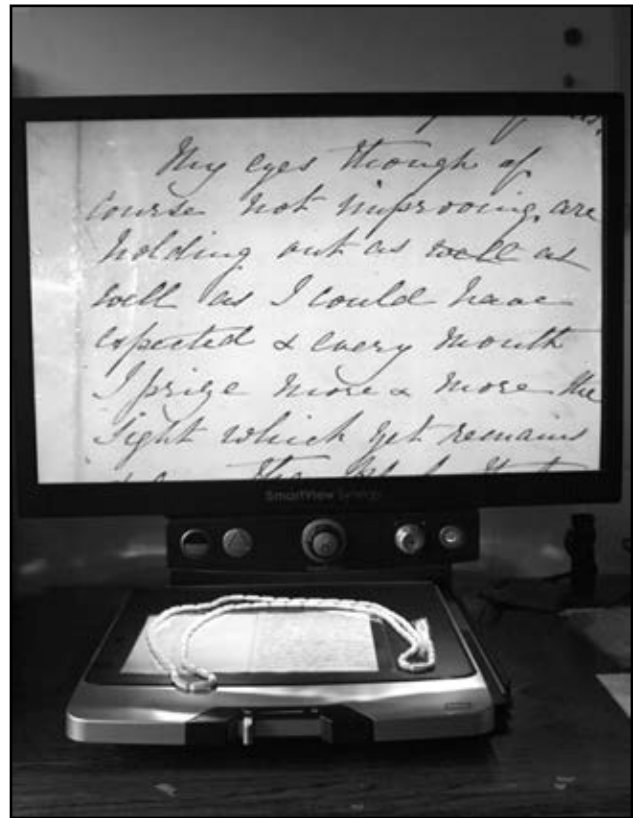 My eyes though of
course not improving, are
holding out as well as
well as I could have
expected & every month
I prize more & more the
sight which yet remains
SmartView Synergy